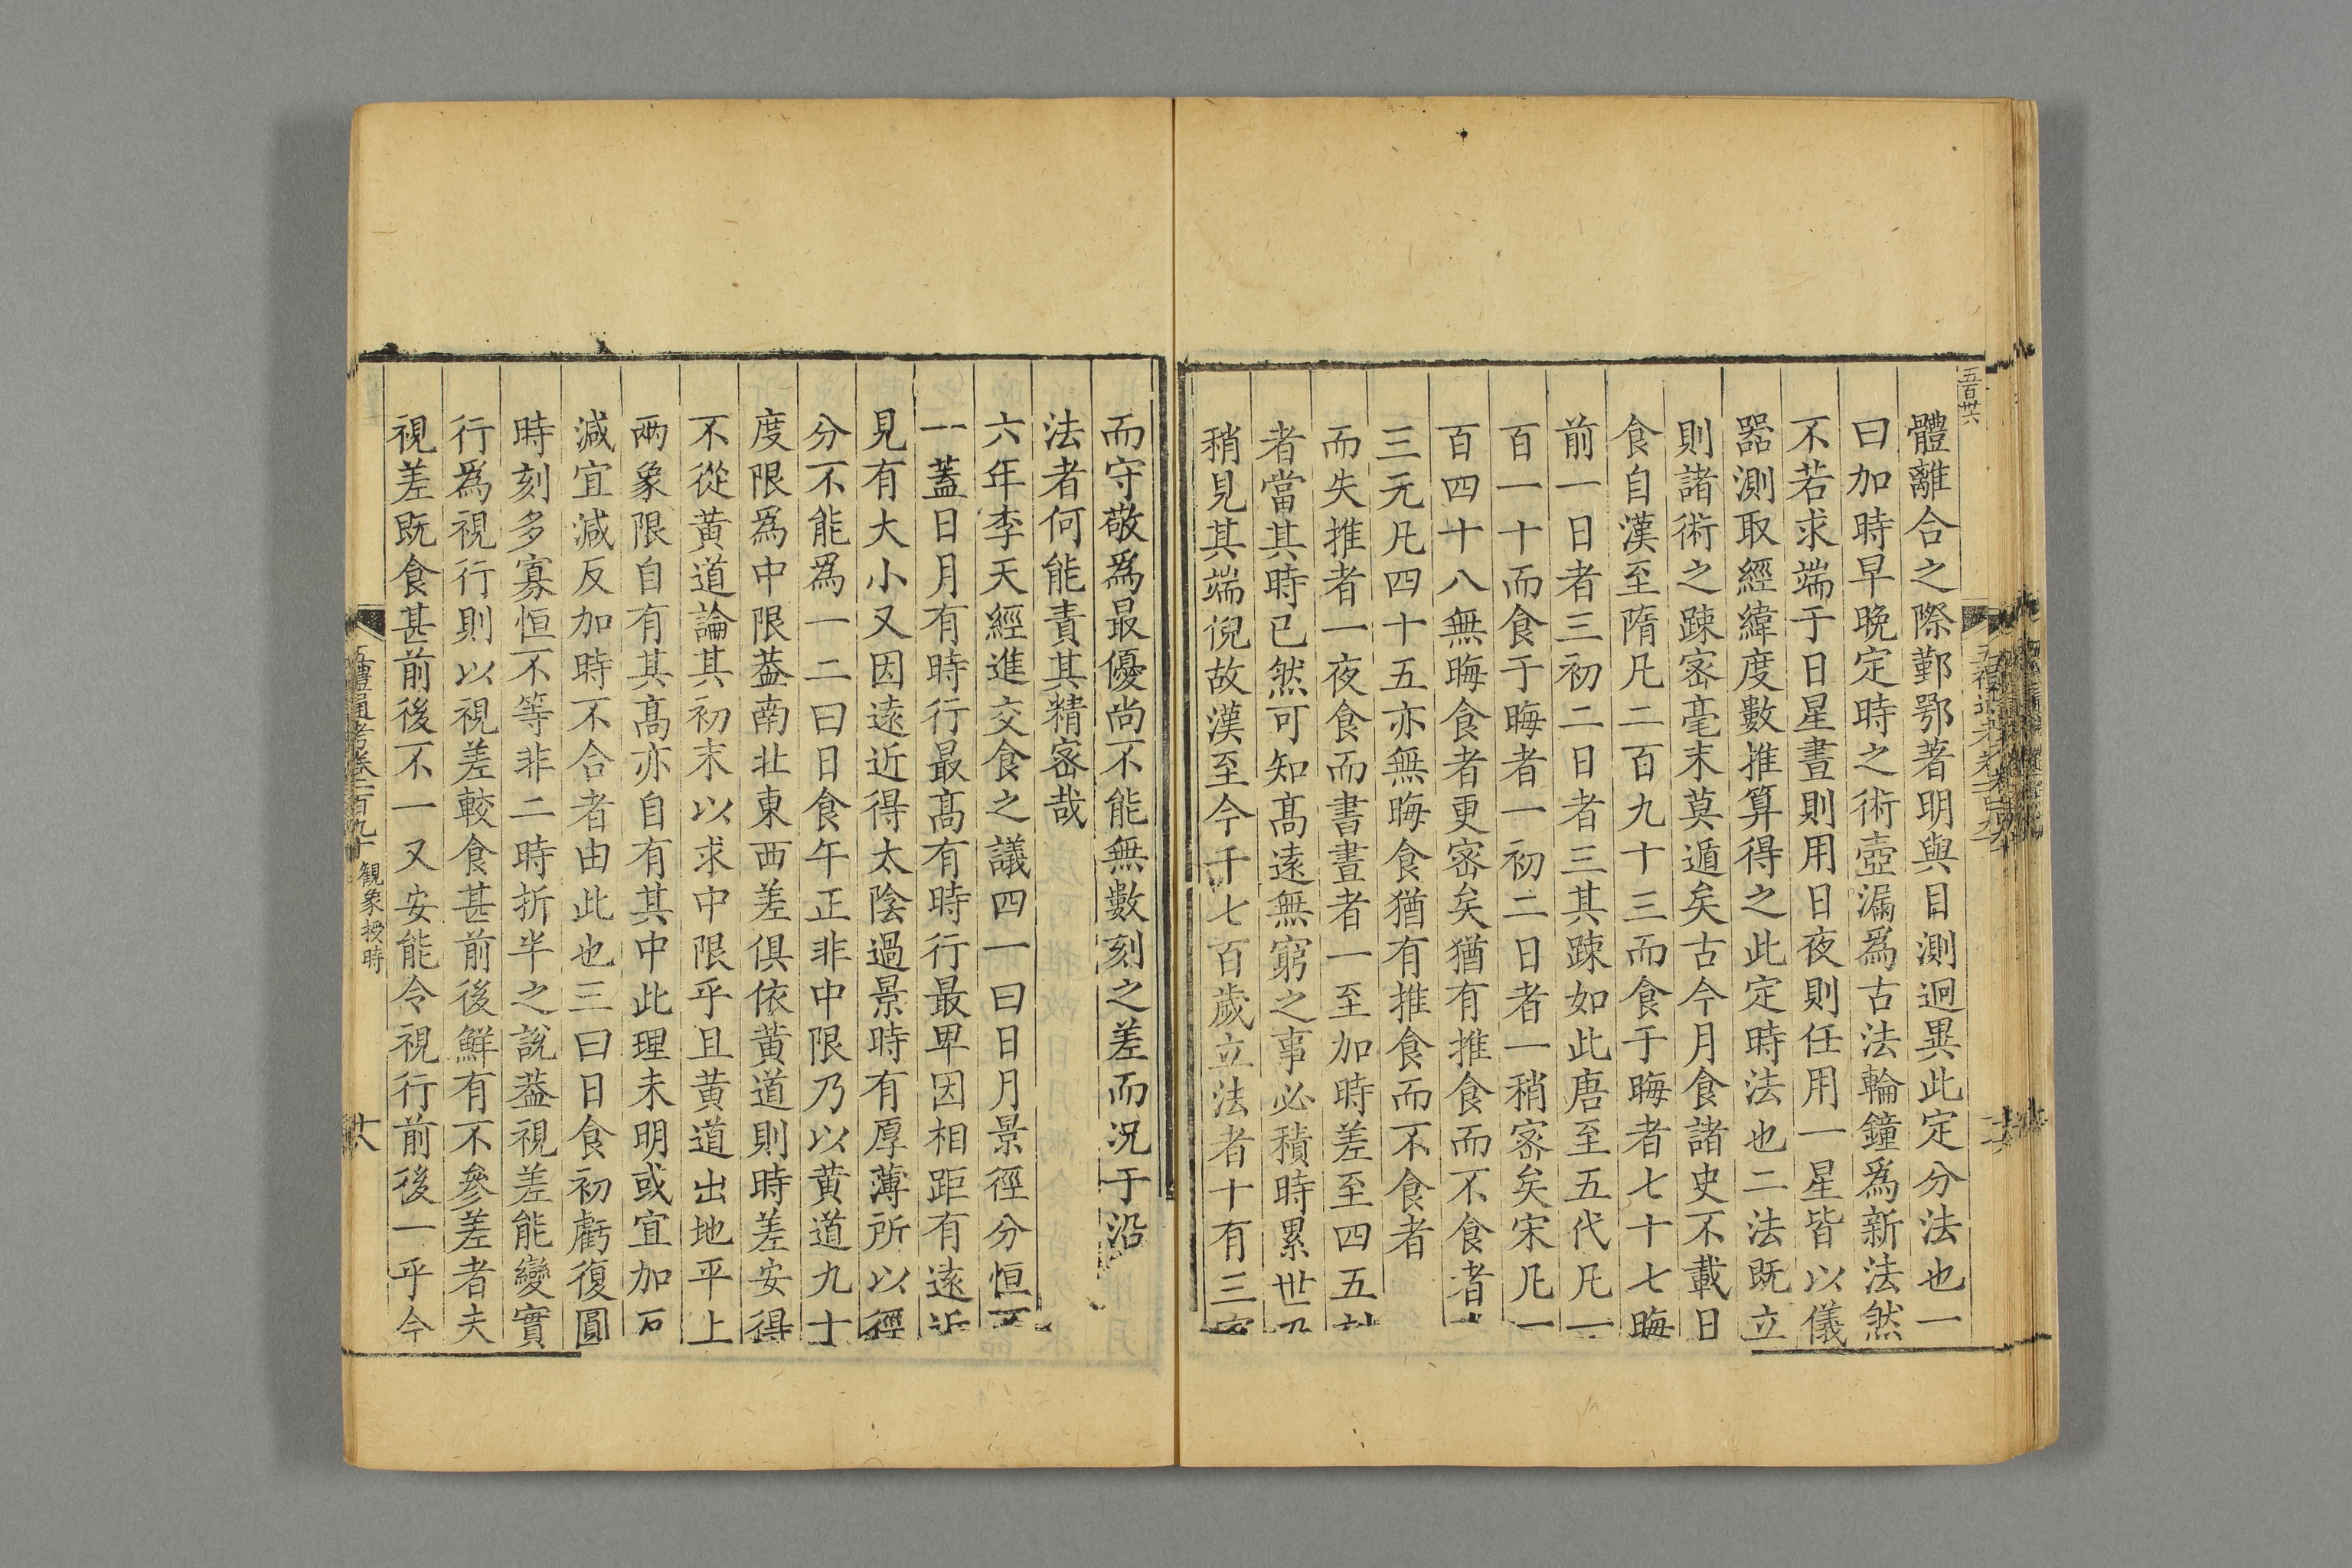 五百卅六
體離合之際鄞鄂著明與目測迥異此定分法也一
曰加時早晩定時之術壺漏爲古法輪鐘爲新法然
不若求端于日星晝則用日夜則任用一星皆以儀
器測取經緯度數推算得之此定時法也二法既立
則諸術之踈宻毫末莫遁矣古今月食諸史不載日
食自漢至隋凡二百九十三而食于晦者七十七晦
前一日者三初二日者三其踈如此唐至五代凡一
百一十而食于晦者一初二日者一稍宻矣宋凡一
百四十八無晦食者更宻矣猶有推食而不食者
三元凡四十五亦無晦食猶有推食而不食者
而失推者一夜食而書晝者一至加時差至四五
者當其時已然可知髙遠無窮之事必積時累世
稍見其端倪故漢至今千七百歲立法者十有三
而守敬爲最優尚不能無數刻之差而况于沿
法者何能責其精宻哉
六年李天經進交食之議四一曰日月景徑分恒
一蓋日月有時行最髙有時行最卑因相距有遠近
見有大小又因遠近得太陰過景時有厚薄所以徑
分不能爲一二曰日食午正非中限乃以黄道九十
度限爲中限葢南北東西差俱依黄道則時差安得
不從黄道論其初末以求中限乎且黄道出地平上
兩象限自有其髙亦自有其中此理未明或宜加
減宜減反加時不合者由此也三曰日食初虧復圓
時刻多寡恒不等非二時折半之說葢視差能變實
行爲視行則以視差較食甚前後鮮有不參差者夫
視差既食甚前後不一又安能令視行前後一乎今
五禮通考卷一百九十
觀象授時